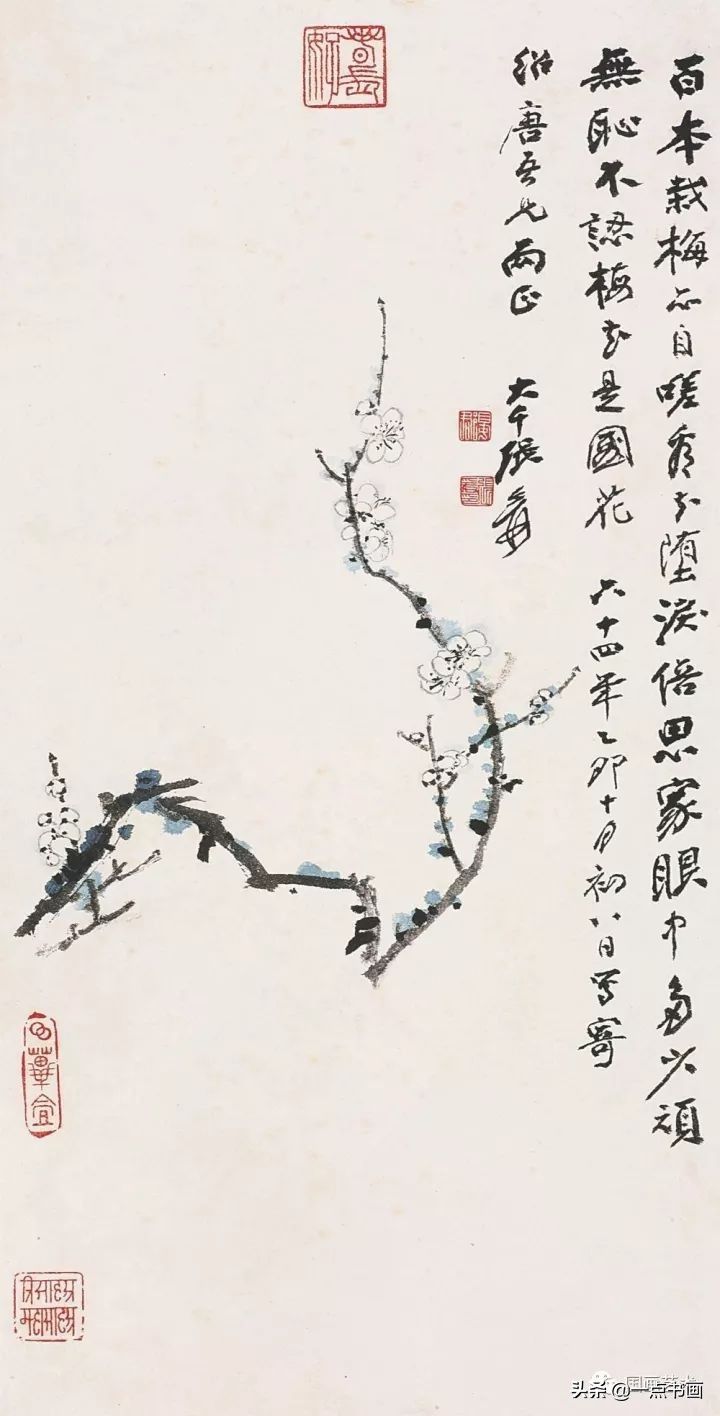 百本栽梅亦自嗟看花墮淚倍思家眼中多少頑
無恥不認梅花是國花 六十四年乙卯十月初八日寫寄
紹唐吾兄兩正 大千張爰
头条 @一点书画